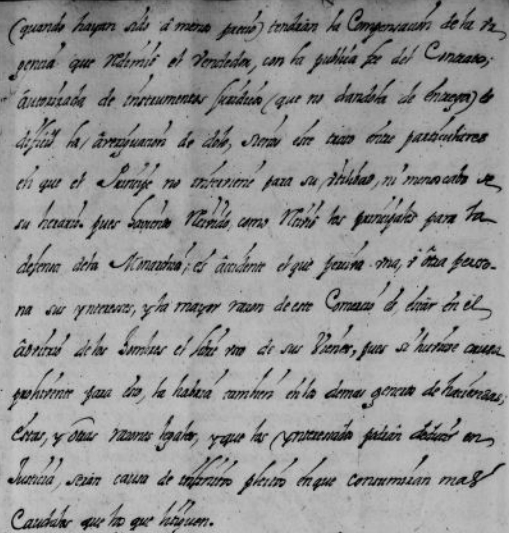 (quando hayan sido â menos precio) tendrán la Compensacion de la
gencia que redimió el Vendedor, con la publica fee del Contrato;
âutorizada de instrumentos Juridicos (que no dandola de entrega) es
dificil la âreriguacion de dolo, siendo este trato entre particulares
en que el Principe no interviene para su utilidad, ni menoscabo de
su herario. pues haviendo recivido, como recivió los principales para la
defensa dela Monarchia; es âccidente el que perciva una, û ôtra perso-
na sus yntereses, y la mayor razon de este Comercio es, estar en el
ârvitrio de los hombres el libre uso de sus Vienes, pues si huviese causa
prohivente para esto, la habria tambien en los demas generos de haciendas;
estas, y ôtras razones legales, y que los ynteresados podrán deducir en
Justicia, serán causa de infinitos pleitos en que consumirán mas
Caudales que los que litiguen.